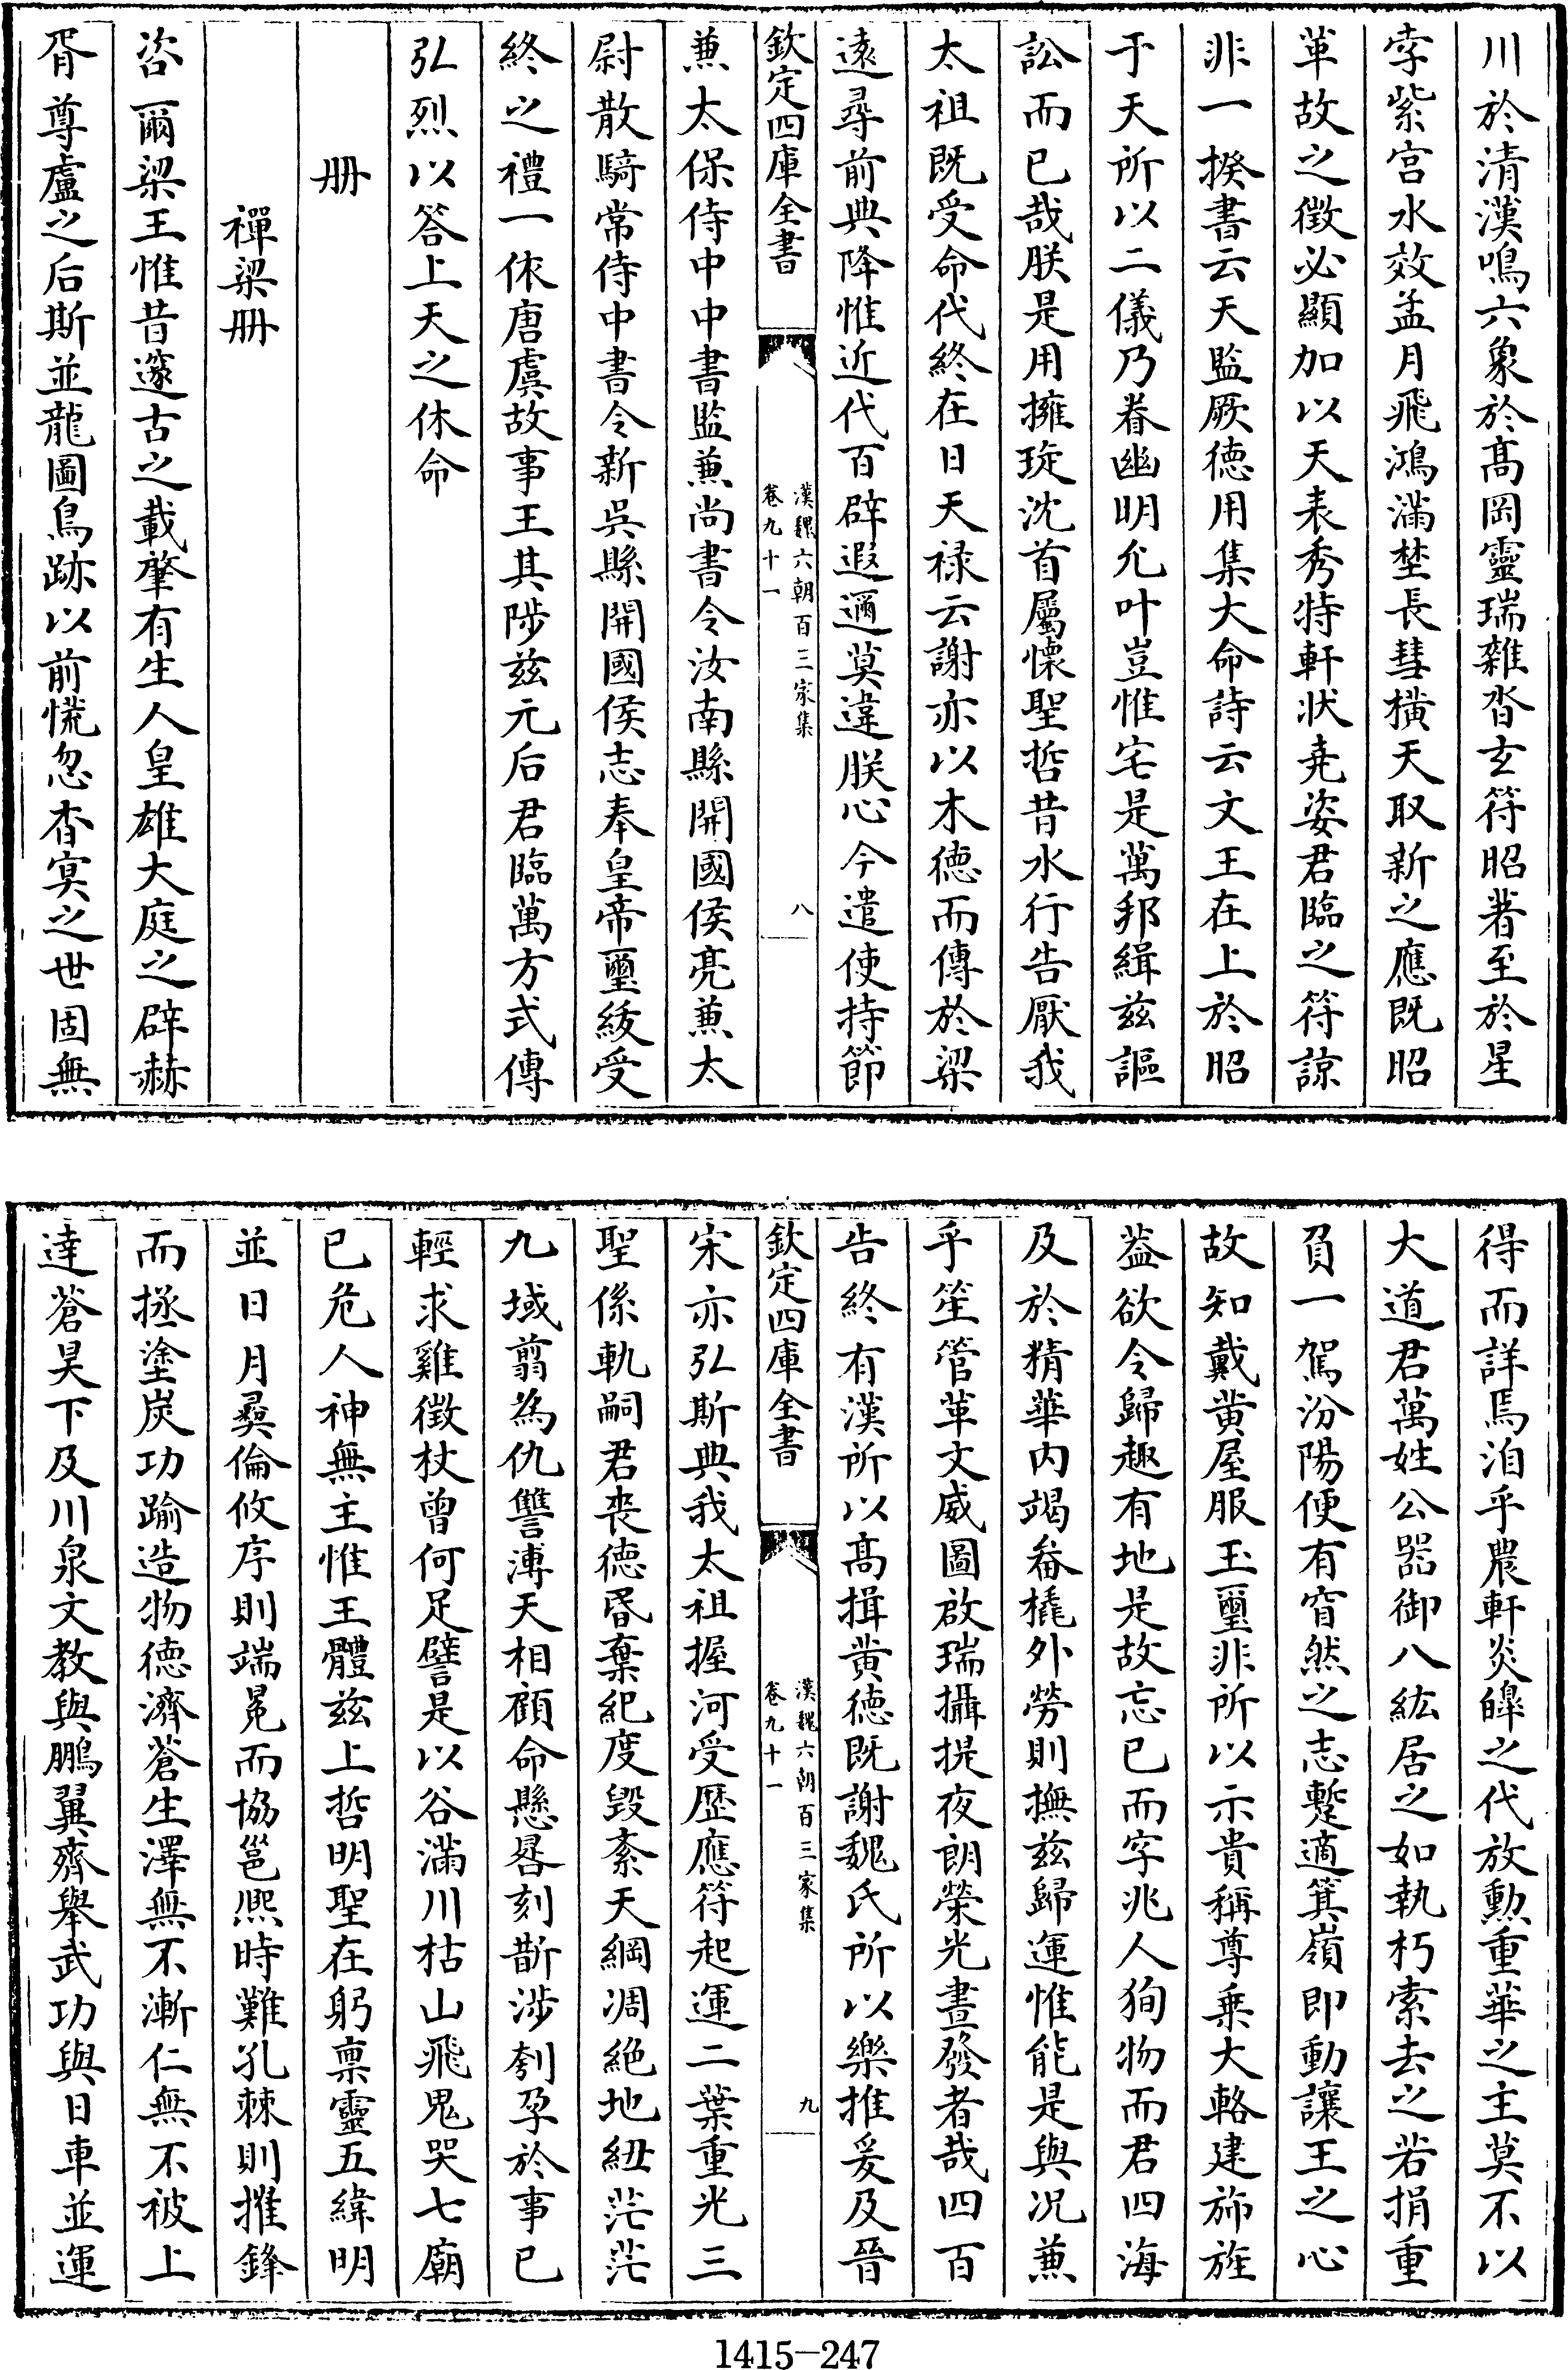 川於清漢鳴六象於髙岡靈瑞雜沓玄符昭著至於星
孛紫宫水效孟月飛鴻滿埜長彗橫天取新之應既昭
革故之徵必顯加以天表秀特軒狀堯姿君臨之符諒
非一揆書云天監厥徳用集大命詩云文王在上於昭
于天所以二儀乃眷幽明允叶豈惟宅是萬邦緝兹謳
訟而已哉朕是用擁琁沈首屬懐聖哲昔水行告厭我
太祖既受命代終在日天禄云謝亦以木徳而傳於梁
逺尋前典降惟近代百辟遐邇莫違朕心今遣使持節
欽定四庫全書
漢魏六朝百三家集
卷九十一
八
兼太保侍中中書監兼尚書令汝南縣開國侯亮兼太
尉散騎常侍中書令新吳縣開國侯志奉皇帝璽紱受
終之禮一依唐虞故事王其陟兹元后君臨萬方式傳
弘烈以答上天之休命
册
禪梁册
咨爾梁王惟昔邃古之載肇有生人皇雄大庭之辟赫
胥尊盧之后斯並龍圖鳥跡以前慌忽杳冥之世固無
得而詳焉洎乎農軒炎皥之代放勲重華之主莫不以
大道君萬姓公器御八紘居之如執朽索去之若捐重
負一駕汾陽便有窅然之志蹔適箕嶺即動讓王之心
故知戴黄屋服玉璽非所以示貴稱尊乗大輅建旆旌
葢欲令歸趣有地是故忘已而字兆人狥物而君四海
及於精華内竭畚橇外勞則撫兹歸運惟能是與况兼
乎笙管革文威圖啟瑞攝提夜朗榮光晝發者哉四百
告終有漢所以髙揖黄徳既謝魏氏所以樂推爰及晉
欽定四庫全書
漢魏六朝百三家集
卷九十一
九
宋亦弘斯典我太祖握河受歴應符起運二葉重光三
聖係軌嗣君喪徳昬棄紀度毁紊天綱凋絶地紐茫茫
九域翦為仇讐溥天相顧命懸晷刻斮涉刳孕於事已
輕求雞徴杖曾何足譬是以谷滿川枯山飛鬼哭七廟
已危人神無主惟王體兹上哲明聖在躬禀靈五緯明
並日月彞倫攸序則端冕而協邕熈時難孔棘則摧鋒
而拯塗炭功踰造物徳濟蒼生澤無不漸仁無不被上
逹蒼昊下及川泉文教與鵬翼齊舉武功與日車並運
1415-247